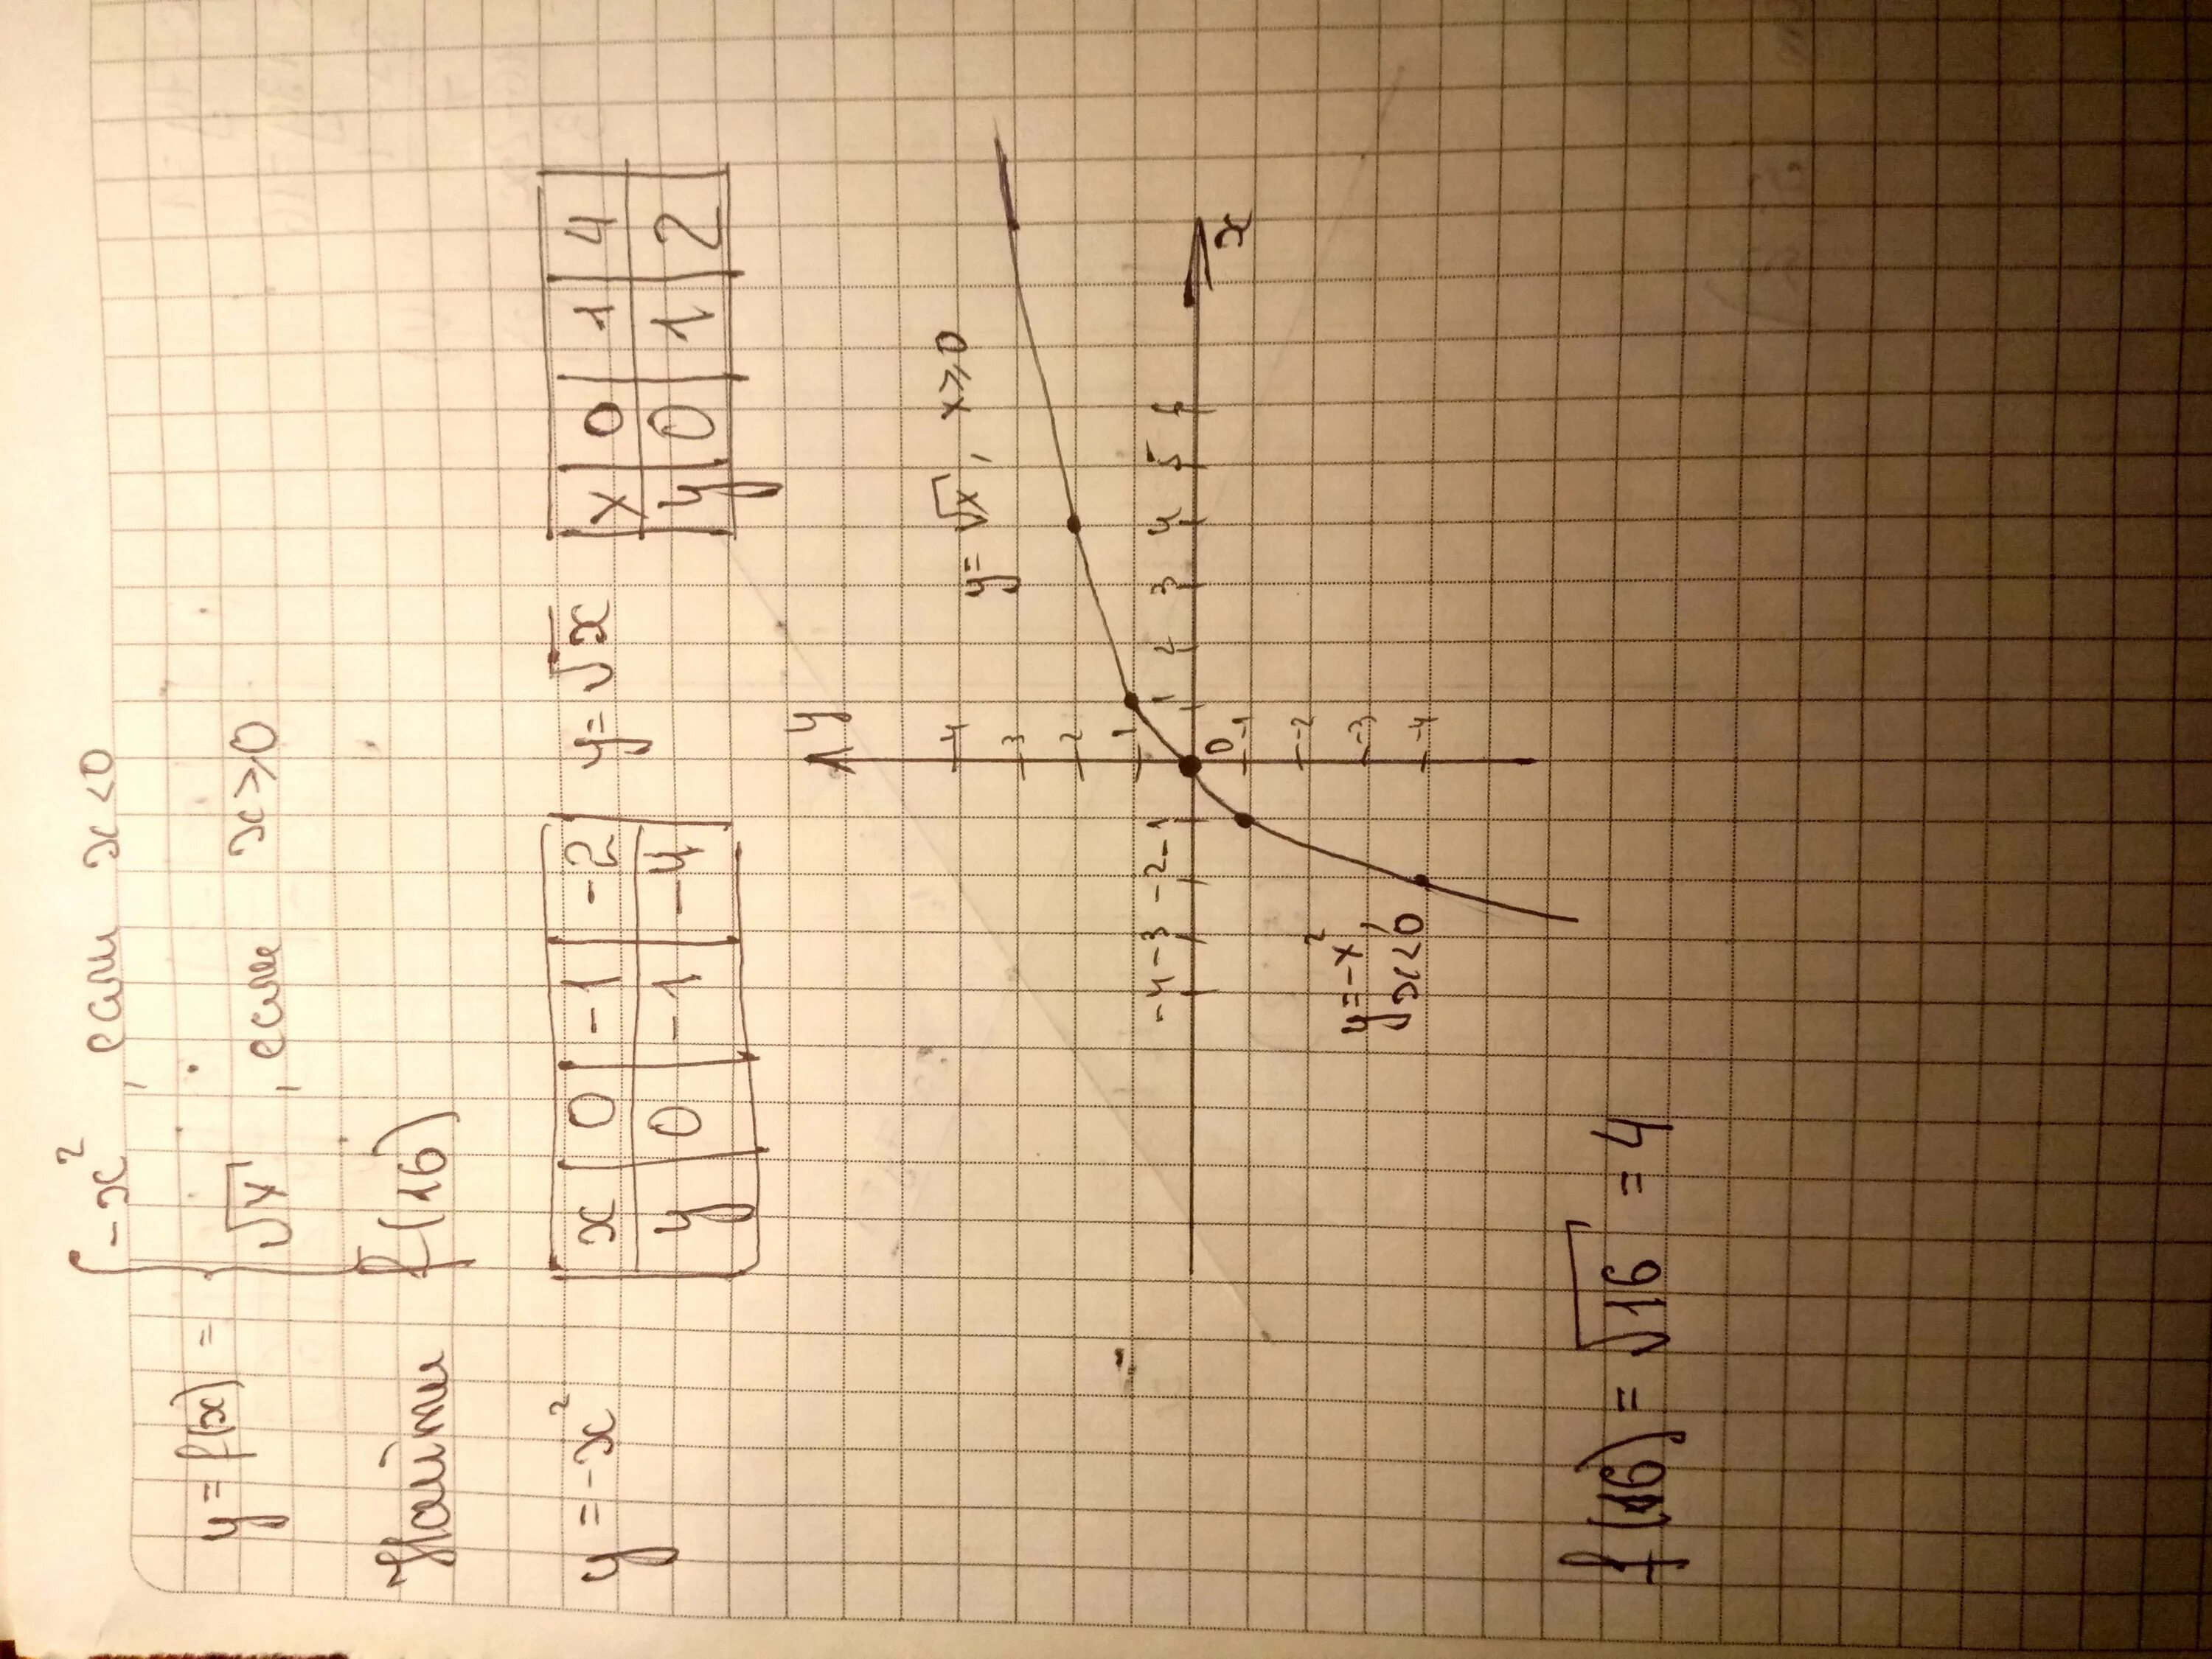 y = f(x) = { -x², если x<0
√x, если x≥0
Найти f(16)
y = -x²
x 0 -1 -2
y 0 -1 -4
y = √x
x 0 1 4
y 0 1 2
y
4
3
2
1
y = √x, x≥0
-4 -3 -2 -1 0 1 2 3 4 5 6 x
-1
-2
-3
-4
y = -x²,
x<0
f(16) = √16 = 4